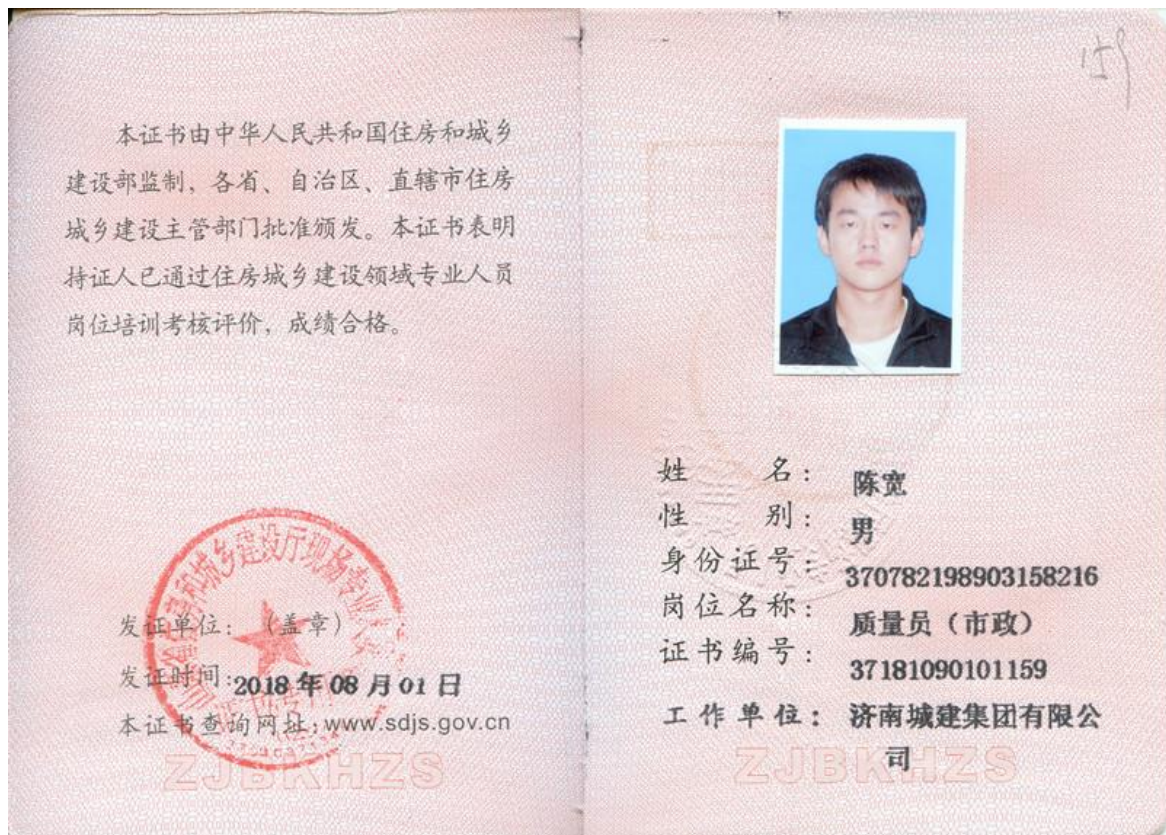 本证书由中华人民共和国住房和城乡
建设部监制，各省、自治区、直辖市住房
城乡建设主管部门批准颁发。本证书表明
持证人已通过住房城乡建设领域专业人员
岗位培训考核评价，成绩合格。
发证单位：（盖章）
发证时间：2018年08月01日
本证书查询网址：www.sdjs.gov.cn
ZJBKHZS
姓名：陈宽
性别：男
身份证号：370782198903158216
岗位名称：质量员（市政）
证书编号：37181090101159
工作单位：济南城建集团有限公
司
ZJBKHZS